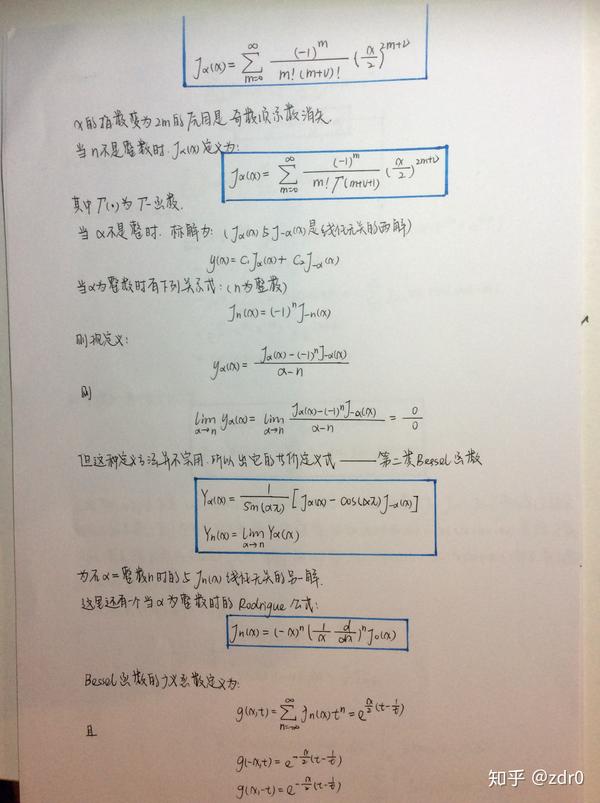 J_α(x) = \sum_{m=0}^{∞} \frac{(-1)^m}{m!(m+ν)!} (\frac{x}{2})^{2m+ν}
x的指数变为2m的原因是奇数项系数消失.
当n不是整数时. J_α(x)定义为:
J_α(x) = \sum_{m=0}^{∞} \frac{(-1)^m}{m! Γ(m+ν+1)} (\frac{x}{2})^{2m+ν}
其中Γ(·)为Γ-函数.
当α不是整时. 标解为: (J_α(x)与J_{-α}(x)是线性无关的两解)
y(x) = C_1 J_α(x) + C_2 J_{-α}(x)
当α为整数时有下列关系式: (n为整数)
J_n(x) = (-1)^n J_{-n}(x)
则规定义:
y_α(x) = \frac{J_α(x) - (-1)^n J_{-α}(x)}{α-n}
则
\lim_{α→n} y_α(x) = \lim_{α→n} \frac{J_α(x) - (-1)^n J_{-α}(x)}{α-n} = \frac{0}{0}
但这种定义方法并不实用. 所以出它的等价定义式 —— 第二类Bessel函数
Y_α(x) = \frac{1}{sin(απ)} [J_α(x) - cos(απ) J_{-α}(x)]
Y_n(x) = \lim_{α→n} Y_α(x)
为在α=整数n时的与J_n(x)线性无关的另一解.
这里还有一个当α为整数时的Rodrigue公式:
J_n(x) = (-x)^n (\frac{1}{x} \frac{d}{dx})^n J_0(x)
Bessel函数的广义函数定义为:
g(x,t) = \sum_{n=-∞}^{∞} J_n(x) t^n = e^{\frac{x}{2}(t-\frac{1}{t})}
且
g(-x,t) = e^{-\frac{x}{2}(t-\frac{1}{t})}
g(x,-t) = e^{-\frac{x}{2}(t-\frac{1}{t})}
知乎 @zdr0